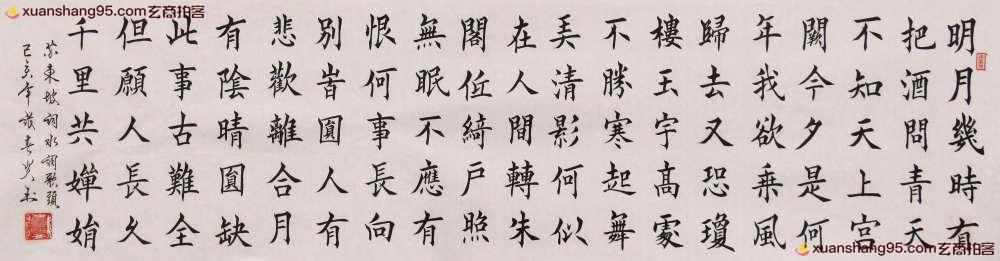 明月幾時有
把酒問青天
不知天上宮
闕今夕是何
年我欲乘風
歸去又恐瓊
樓玉宇高處
不勝寒起舞
弄清影何似
在人間轉朱
閣低綺戶照
無眠不應有
恨何事長向
別旹圓人有
悲歡離合月
有陰晴圓缺
此事古難全
但願人長久
千里共嬋娟
蘇東坡詞水調歌頭
己亥年
xuanshang95.com玄商拍客
xuanshang95.com玄商拍客